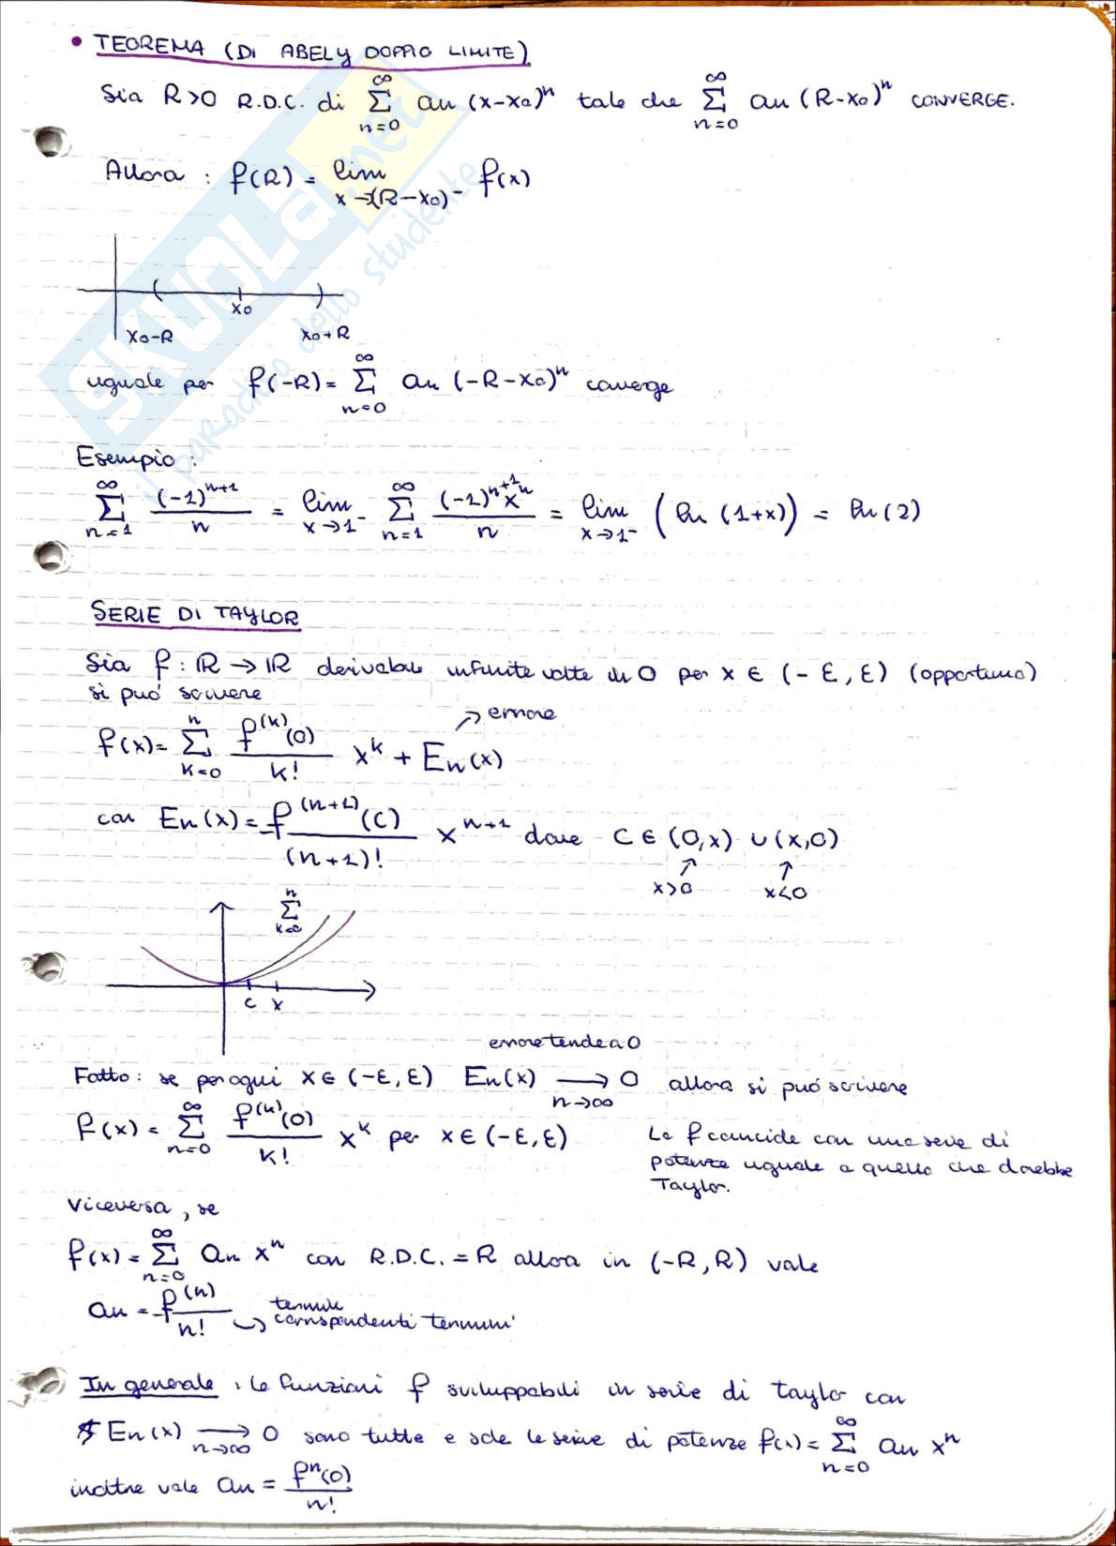 • TEOREMA (DI ABEL y DOPPIO LIMITE)
Sia R>0 R.D.C. di ∑_{n=0}^{∞} an (x-x0)^n tale che ∑_{n=0}^{∞} an (R-x0)^n CONVERGE.
Allora : f(R) = lim_{x→(R-x0)^-} f(x)
x0
x0-R x0+R
uguale per f(-R) = ∑_{n=0}^{∞} an (-R-x0)^n converge
Esempio :
∑_{n=1}^{∞} (-1)^{n+1}/n = lim_{x→1^-} ∑_{n=1}^{∞} (-1)^{n+1} x^n/n = lim_{x→1^-} (ln (1+x)) = ln(2)
SERIE DI TAYLOR
Sia f : ℝ → ℝ derivabile infinite volte in 0 per x ∈ (-ε, ε) (opportuno)
si può scrivere
↗ errore
f(x) = ∑_{k=0}^{n} f^{(k)}(0)/k! x^k + En(x)
con En(x) = f^{(n+1)}(c)/(n+1)! x^{n+1} dove c ∈ (0,x) ∪ (x,0)
↗ ↑
x>0 x<0
∑_{k=0}^{n}
c x
errore tende a 0
Fatto : se per ogni x ∈ (-ε, ε) En(x) →_{n→∞} 0 allora si può scrivere
f(x) = ∑_{n=0}^{∞} f^{(k)}(0)/k! x^k per x ∈ (-ε, ε)
La f coincide con una serie di
potenze uguale a quello che darebbe
Taylor.
Viceversa , se
f(x) = ∑_{n=0}^{∞} an x^n con R.D.C. = R allora in (-R, R) vale
an = f^{(n)}/n! ↪
corrispondenti termini
In generale : le funzioni f sviluppabili in serie di taylor con
En(x) →_{n→∞} 0 sono tutte e sole le serie di potenze f(x) = ∑_{n=0}^{∞} an x^n
inoltre vale an = f^n(0)/n!
SKUOLA.net
il paradiso dello studente